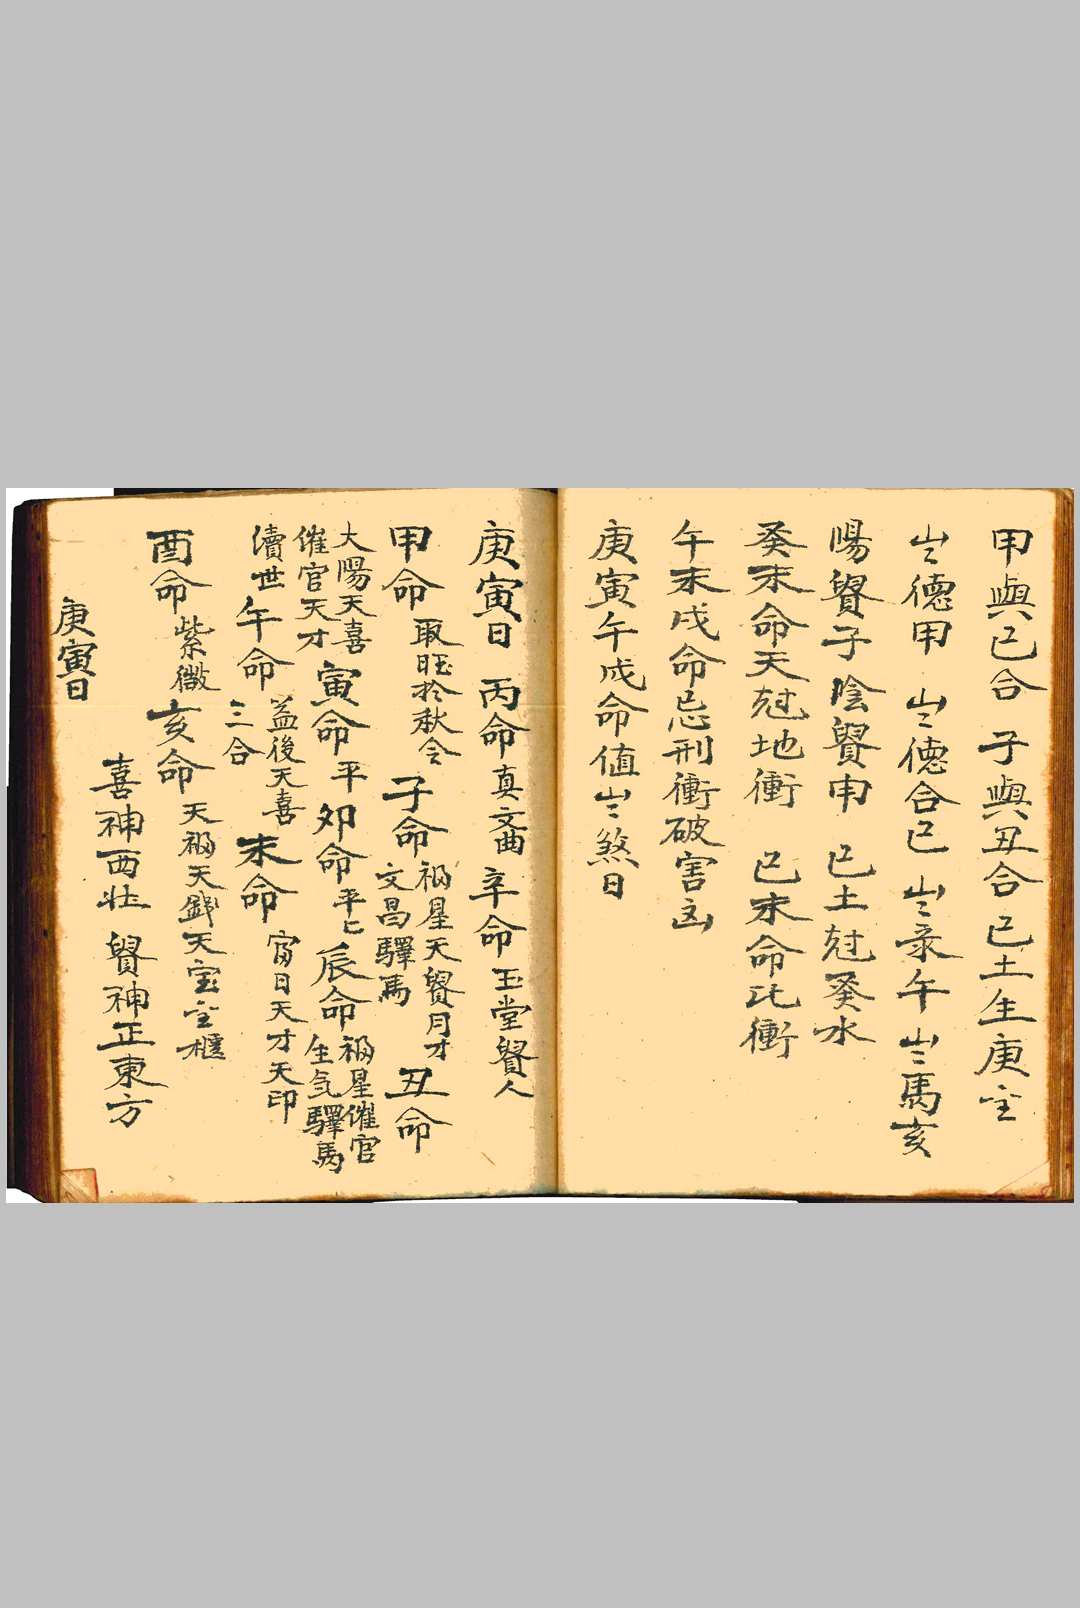 甲與己合 子與丑合 己土生庚金
亗德甲 亗德合己 亗录午 亗馬亥
陽貴子 陰貴申 己土尅癸水
癸未命天尅地衝 己未命比衝
午未戌命忌刑衝破害凶
庚寅午戌命值亗煞日
庚寅日 丙命 真文曲 辛命 玉堂貴人
甲命 取旺於秋令 子命 福星天貴月才文昌驛馬 丑命
太陽天喜催官天才 寅命 平 卯命 平匕 辰命 福星催官生气驛馬
瀆世 午命 益後天喜三合 未命 日天才天印
酉命 紫微 亥命 天福天錢天宝金櫃
喜神西北 貴神正東方
庚寅日